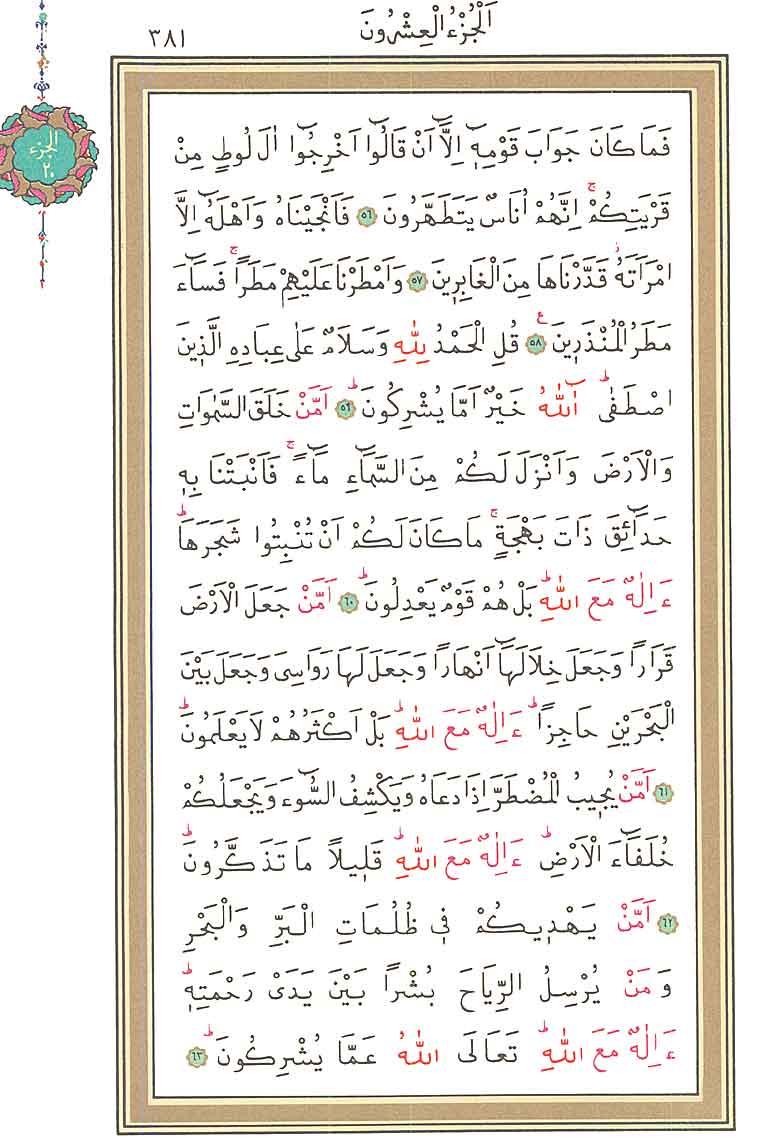 اَلْجُزْءُ الْعِشْرُونَ
٣٨١
الجزء
٢٠
فَمَا كَانَ جَوَابَ قَوْمِه۪ٓ اِلَّٓا اَنْ قَالُٓوا اَخْرِجُٓوا اٰلَ لُوطٍ مِنْ
قَرْيَتِكُمْۚ اِنَّهُمْ اُنَاسٌ يَتَطَهَّرُونَ ﴿٥٦﴾ فَاَنْجَيْنَاهُ وَاَهْلَهُٓ اِلَّا
امْرَاَتَهُۘ قَدَّرْنَاهَا مِنَ الْغَابِر۪ينَ ﴿٥٧﴾ وَاَمْطَرْنَا عَلَيْهِمْ مَطَرًاۚ فَسَٓاءَ
مَطَرُ الْمُنْذَر۪ينَ ﴿٥٨﴾ ع قُلِ الْحَمْدُ لِلّٰهِ وَسَلَامٌ عَلٰى عِبَادِهِ الَّذ۪ينَ
اصْطَفٰىۜ آٰللّٰهُ خَيْرٌ اَمَّا يُشْرِكُونَۜ ﴿٥٩﴾ اَمَّنْ خَلَقَ السَّمٰوَاتِ
وَالْاَرْضَ وَاَنْزَلَ لَكُمْ مِنَ السَّمَٓاءِ مَٓاءًۚ فَاَنْبَتْنَا بِه۪
حَدَٓائِقَ ذَاتَ بَهْجَةٍۚ مَا كَانَ لَكُمْ اَنْ تُنْبِتُوا شَجَرَهَاۜ
ءَاِلٰهٌ مَعَ اللّٰهِۜ بَلْ هُمْ قَوْمٌ يَعْدِلُونَۜ ﴿٦٠﴾ اَمَّنْ جَعَلَ الْاَرْضَ
قَرَارًا وَجَعَلَ خِلَالَهَٓا اَنْهَارًا وَجَعَلَ لَهَا رَوَاسِىَ وَجَعَلَ بَيْنَ
الْبَحْرَيْنِ حَاجِزًاۜ ءَاِلٰهٌ مَعَ اللّٰهِۜ بَلْ اَكْثَرُهُمْ لَا يَعْلَمُونَۜ
﴿٦١﴾ اَمَّنْ يُج۪يبُ الْمُضْطَرَّ اِذَا دَعَاهُ وَيَكْشِفُ السُّٓوءَ وَيَجْعَلُكُمْ
خُلَفَٓاءَ الْاَرْضِۜ ءَاِلٰهٌ مَعَ اللّٰهِۜ قَل۪يلًا مَا تَذَكَّرُونَۜ
﴿٦٢﴾ اَمَّنْ يَهْد۪يكُمْ ف۪ى ظُلُمَاتِ الْبَرِّ وَالْبَحْرِ
وَمَنْ يُرْسِلُ الرِّيَاحَ بُشْرًا بَيْنَ يَدَىْ رَحْمَتِه۪ۜ
ءَاِلٰهٌ مَعَ اللّٰهِۜ تَعَالَى اللّٰهُ عَمَّا يُشْرِكُونَۜ ﴿٦٣﴾